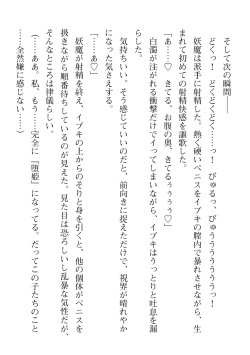 そして次の瞬間――
どくどく、どくどく……っ！　びゅるっ、びゅうぅぅぅぅぅっ！
妖魔は派手に射精した。熱く硬いペニスをイブキの膣内で暴れさせながら、生
まれて初めての射精快感を謳歌した。
「あ……♡　きてる、お腹の奥、きてるぅぅぅぅ♡」
白濁が注がれる衝撃だけでイってしまいながら、イブキはうっとりと吐息を漏
らした。
気持ちいい。そう感じていいのだと、前向きに捉えただけで、視界が晴れやか
になった気さえする。
「……あ♡」
妖魔が射精を終え、イブキの上からのそりと身を引くと、他の個体がペニスを
扱きながら順番待ちしているのが見えた。見た目は恐ろしいし乱暴な気性だが、
そんなところは律儀らしい。
（……ああ。私、もう……完全に『堕姫』になってる。だってこの子たちのこと
……全然嫌に感じない……）